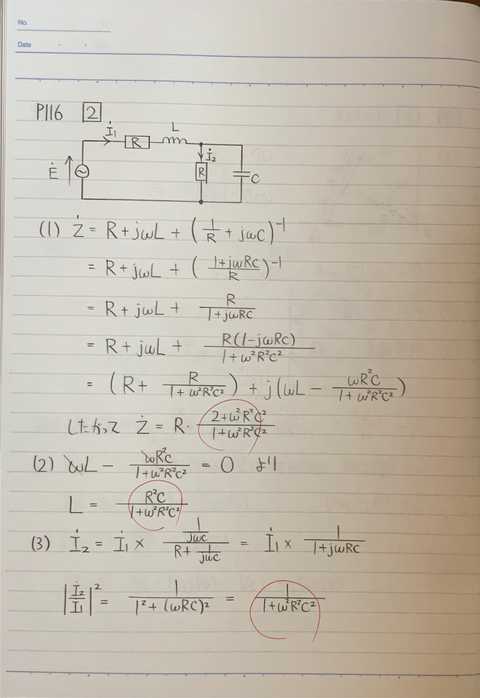 No.
Date
P116 [2]
İ₁ R L İ₂ R C Ė
(1) Ż = R + jωL + (1/R + jωC)⁻¹
= R + jωL + ((1+jωRC)/R)⁻¹
= R + jωL + R/(1+jωRC)
= R + jωL + R(1-jωRC)/(1+ω²R²C²)
= (R + R/(1+ω²R²C²)) + j(ωL - ωR²C/(1+ω²R²C²))
したがって Ż = R・(2+ω²R²C²)/(1+ω²R²C²)
(2) ωL - ωR²C/(1+ω²R²C²) = 0 より
L = R²C/(1+ω²R²C²)
(3) İ₂ = İ₁ × (1/jωC)/(R + 1/jωC) = İ₁ × 1/(1+jωRC)
|İ₂/İ₁|² = 1/(1²+(ωRC)²) = 1/(1+ω²R²C²)